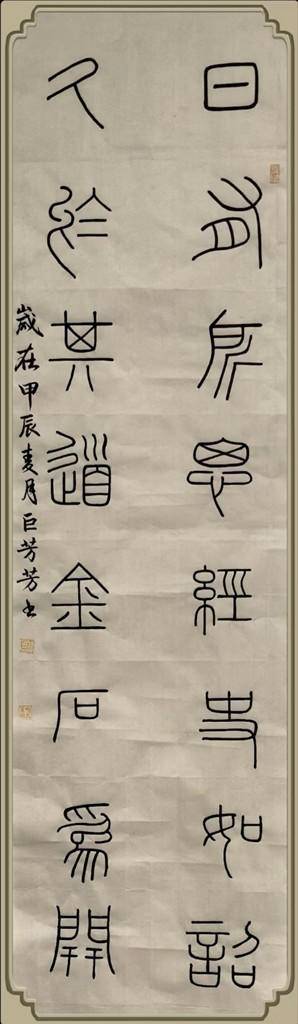 日有所思經史如詔
久於其道金石為開
歲在甲辰夏月巨芳芳書